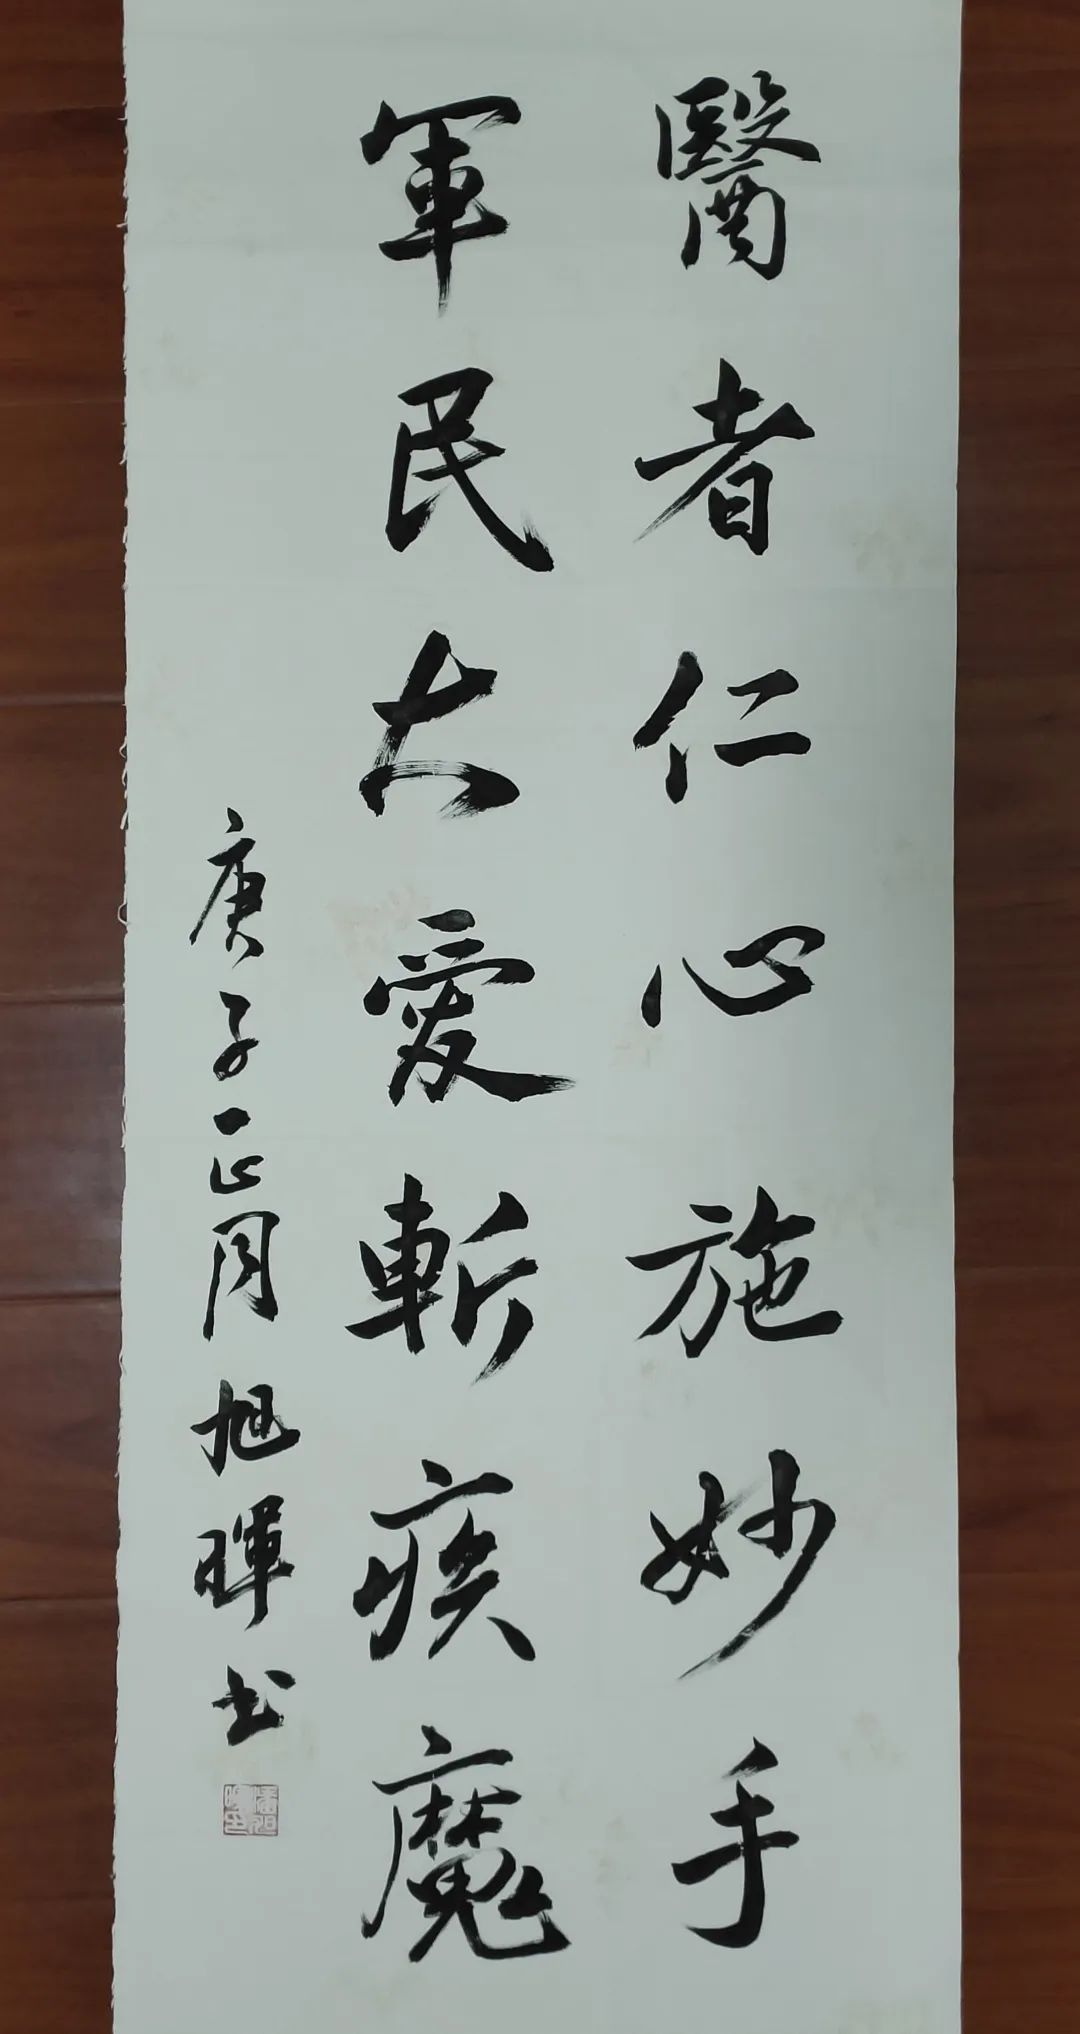 醫者仁心施妙手
軍民大愛斬疾魔
庚子正月旭暉书
潘旭暉印